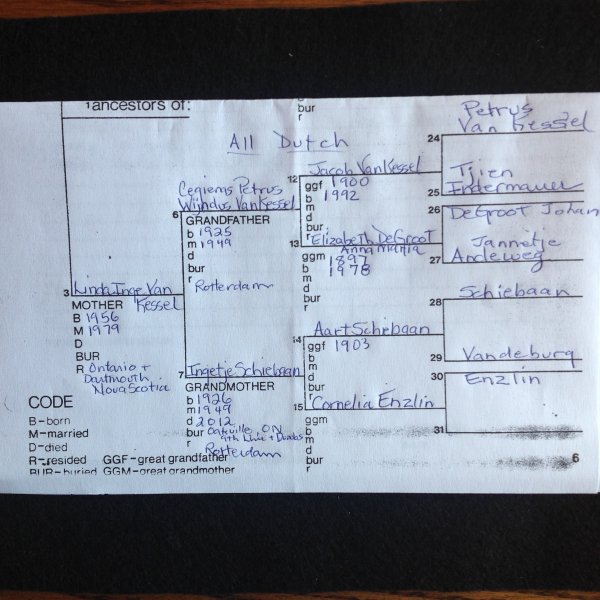 1ancestors of:
bur
r
Petrus
Van Kessel
24
All Dutch
12
Jacob VanKessel
ggf 1900
b 1992
m
d
bur
r
Tjien
25
Endermauer
Cegiems Petrus
Wijndus VanKessel
6
GRANDFATHER
b 1925
m 1949
d
bur
r
Rotterdam
26
DeGroot Johan
13
Elizabeth DeGroot
Anna Maria
ggm
b 1897
m 1978
d
bur
r
Jannetje
27
Andeweg
3
Linda Inge Van
Kessel
MOTHER
B 1956
M 1979
D
BUR
R Ontario +
Dartmouth
Nova Scotia
28
Schiebaan
14
Aart Schiebaan
ggf 1903
b
m
d
bur
r
29
Vandeburg
7
Ingetje Schiebaan
GRANDMOTHER
b 1926
m 1949
d 2012
bur Oakville, ON
9th Line + Dundas
r
Rotterdam
30
Enzlin
15
Cornelia Enzlin
ggm
b
m
d
bur
r
31
6
CODE
B-born
M-married
D-died
R-resided GGF-great grandfather
BUR-buried GGM-great grandmother